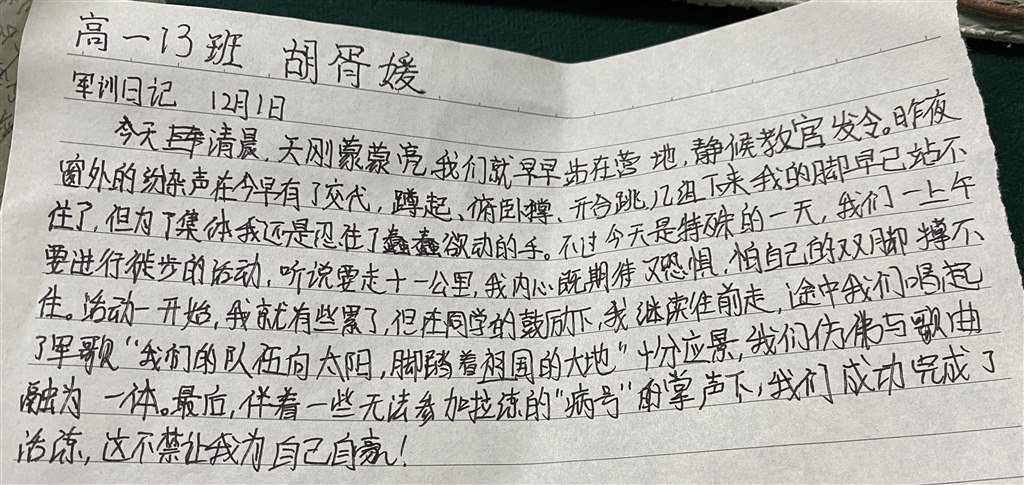 高一13班 胡胥媛
军训日记 12月1日
今天清晨,天刚蒙蒙亮,我们就早早步在营地,静候教官发令。昨夜
窗外的纷杂声在今早有了交代,蹲起、俯卧撑、开合跳几组下来我的脚早已站不
住了,但为了集体我还是忍住了蠢蠢欲动的手。不过今天是特殊的一天,我们一上午
要进行徒步的活动,听说要走十一公里,我内心既期待又恐惧,怕自己的双脚撑不
住。活动一开始,我就有些累了,但在同学的鼓励下,我继续往前走,途中我们唱起
了军歌“我们的队伍向太阳,脚踏着祖国的大地”十分应景,我们仿佛与歌曲
融为一体。最后,伴着一些无法参加拉练的“病号”的掌声下,我们成功完成了
拉练,这不禁让我为自己自豪!